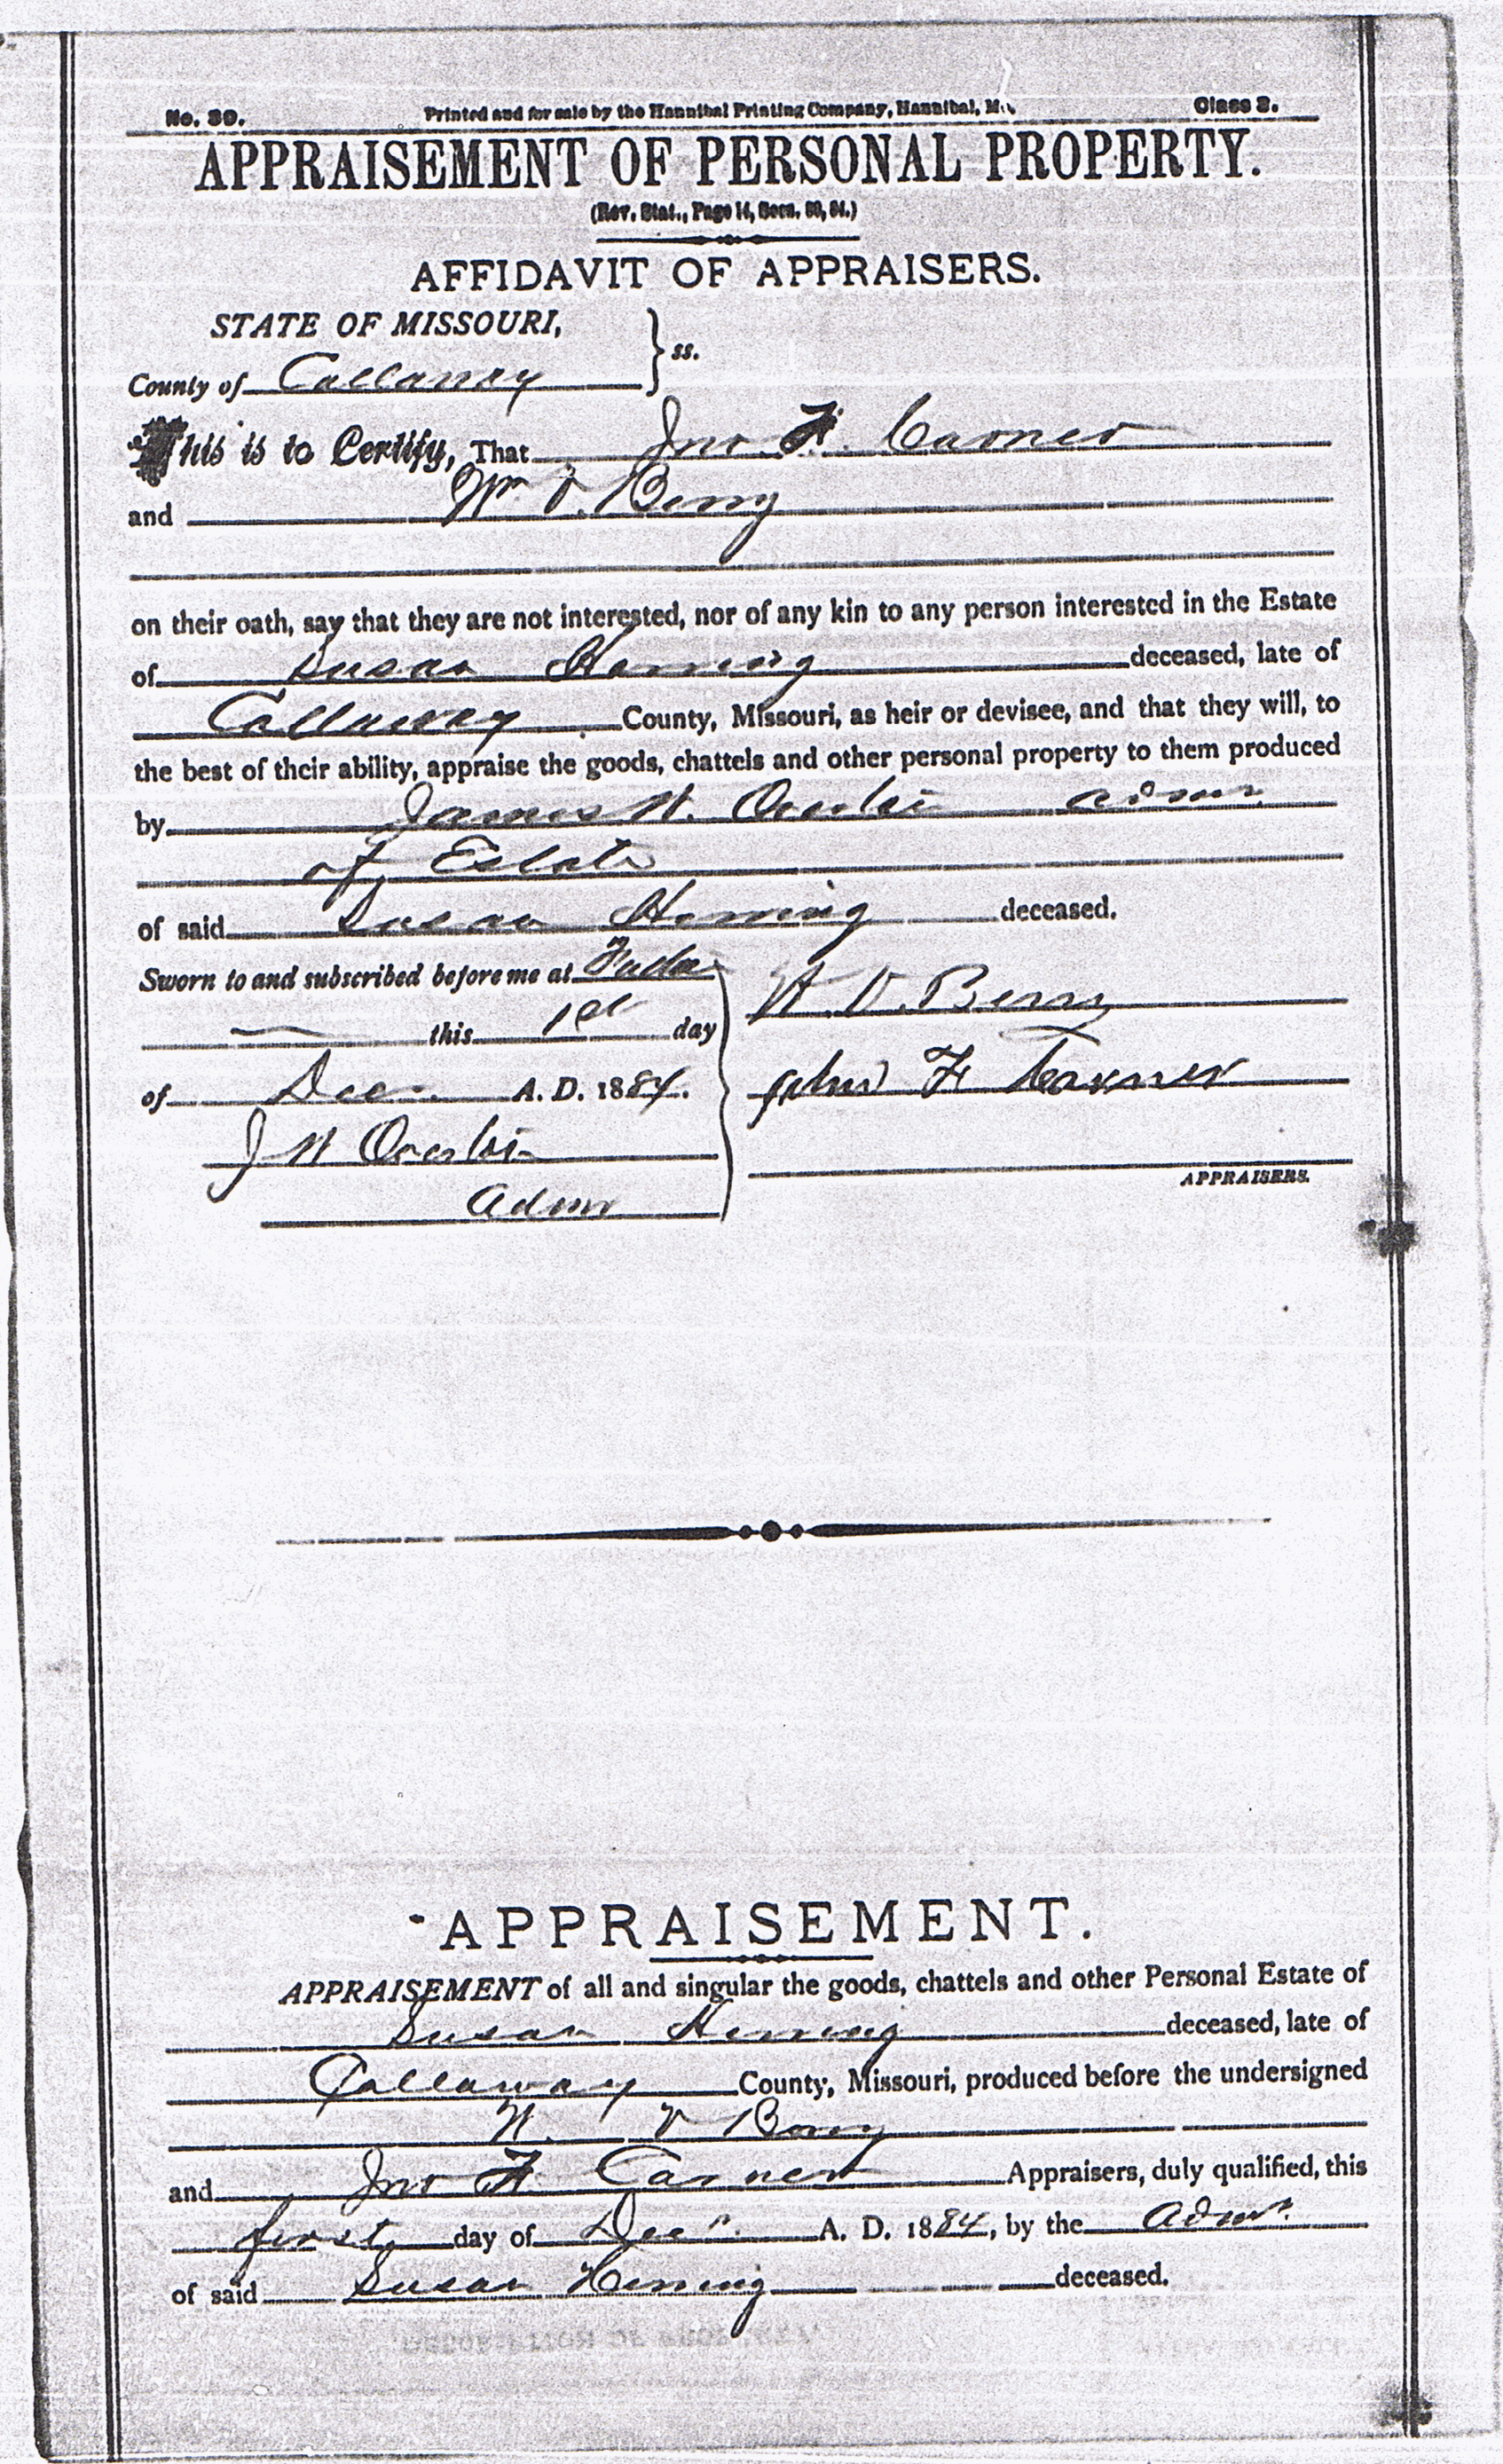 No. 30. Printed and for sale by the Hannibal Printing Company, Hannibal, Mo. Class 3.
APPRAISEMENT OF PERSONAL PROPERTY.
(Rev. Stat., Page 14, Secs.
AFFIDAVIT OF APPRAISERS.
STATE OF MISSOURI,
County of Callaway } ss.
This is to Certify, That Jno. F. Carner
and Wm D. Berry
on their oath, say that they are not interested, nor of any kin to any person interested in the Estate
of Susan Herring deceased, late of
Callaway County, Missouri, as heir or devisee, and that they will, to
the best of their ability, appraise the goods, chattels and other personal property to them produced
by James W. admr.
of Estate
of said Susan Herring deceased.
Sworn to and subscribed before me at
this 1st day
of Dec. A. D. 1884.
J W
Admr
W. D. Berry
John F Carner
APPRAISERS.
APPRAISEMENT.
APPRAISEMENT of all and singular the goods, chattels and other Personal Estate of
Susan Herring deceased, late of
Callaway County, Missouri, produced before the undersigned
W. D Berry
and Jno F. Carner Appraisers, duly qualified, this
first day of Decr. A. D. 1884, by the Admr.
of said Susan Herring deceased.